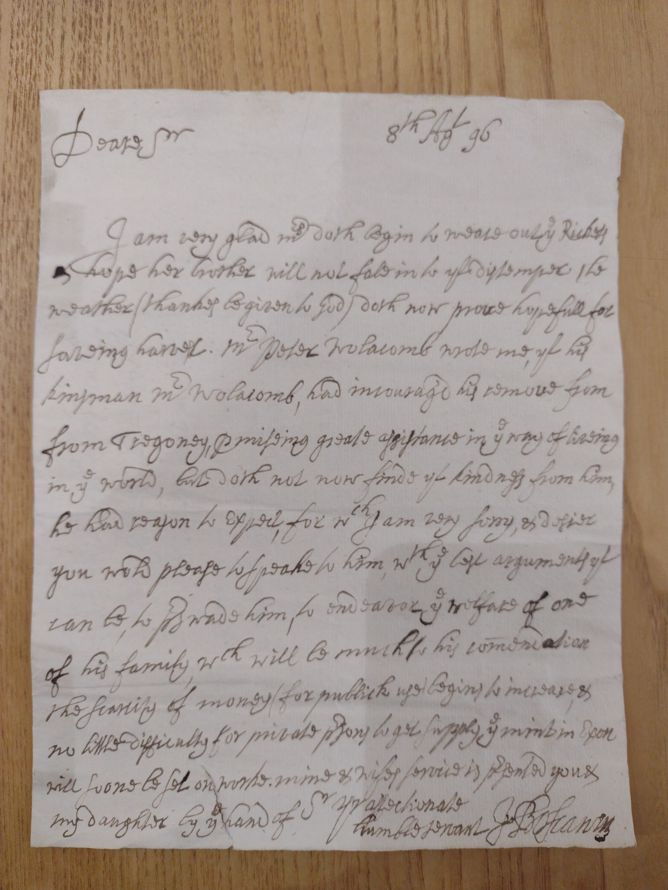 Deare Sr 8th Agt 96
I am very glad doth begin to weare out ye Rickets
& hope her brother will not fale in to yt distemper the
weather (thankes be given to God) doth now prove hopefull for
saveing harvest. Mr Peter Wolacomb wrote me, yt his
kinsman Mr Wolacomb, had incouragd his remove from
from Tregoney, pmiseing greate assistance in ye way of liveing
in ye world, but doth not now finde yt kindness from him,
he had reason to Expect, for wch I am very sorry, & desier
you wold please to speake to him, wth ye best arguments yt
can be, to pswade him, to endeavor ye welfare of one
of his family, wch will be much to his comendation
the scarsity of money (for publick use) begins to increase, &
no little difficulty for private psons to get supply, ye mint in Exon
will soone be set on worke. mine & wifes service is psented you &
my daughter by ye hand of Sr yr affectionate
humble servant